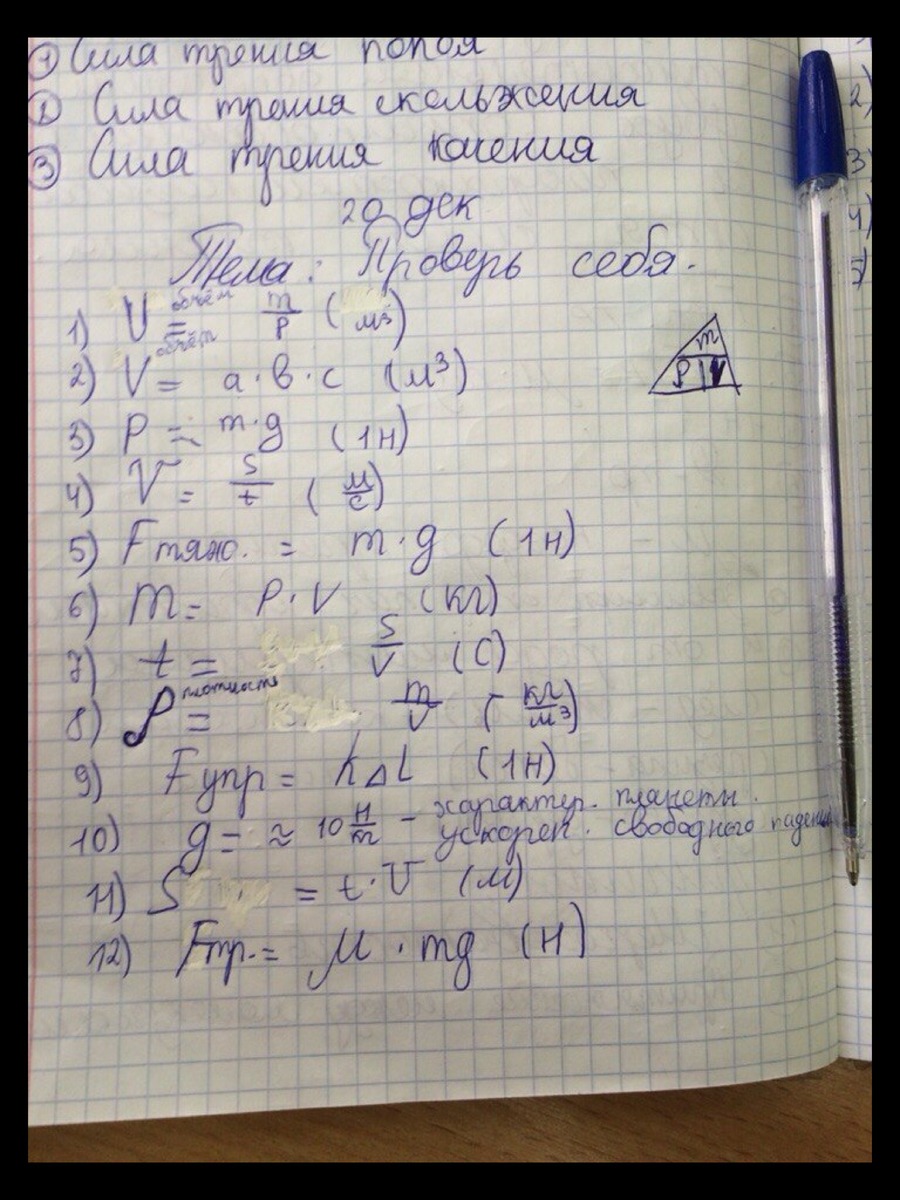 1) Сила трения покоя
2) Сила трения скольжения
3) Сила трения качения
20 дек
Тема: Проверь себя.
1) V объём = m/ρ (м³)
2) V объём = a·b·c (м³)
3) P = m·g (1Н)
4) V = S/t (м/с)
5) Fтяж. = m·g (1Н)
6) m = ρ·V (кг)
7) t = S/V (с)
8) ρ плотность = m/V (кг/м³)
9) Fупр = kΔL (1Н)
10) g = ≈ 10 Н/m – характер. планеты.
ускорен. свободного падения
11) S = t·V (м)
12) Fтр. = μ·mg (Н)
m
ρ V
2)
3)
4)
5)